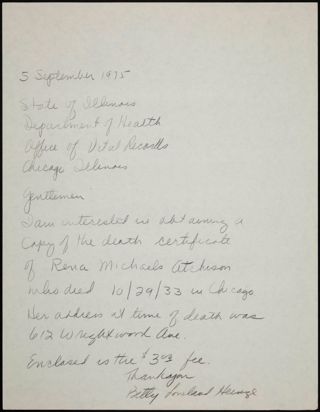 5 September 1975
State of Illinois
Department of Health
Office of Vital Records
Chicago Illinois
Gentlemen
I am interested in obtaining a
copy of the death certificate
of Rena Michaels Atchison
who died 10/29/33 in Chicago
Her address at time of death was
612 Wrightwood Ave.
Enclosed is the $3.00 fee.
Thank you
Betty